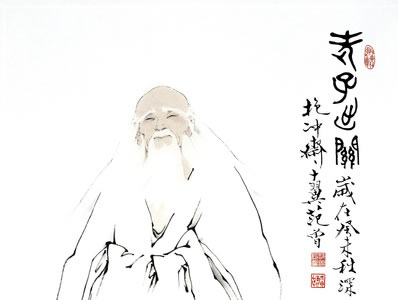 老子出關
歲在癸未秋深
抱冲齋十翼范曾